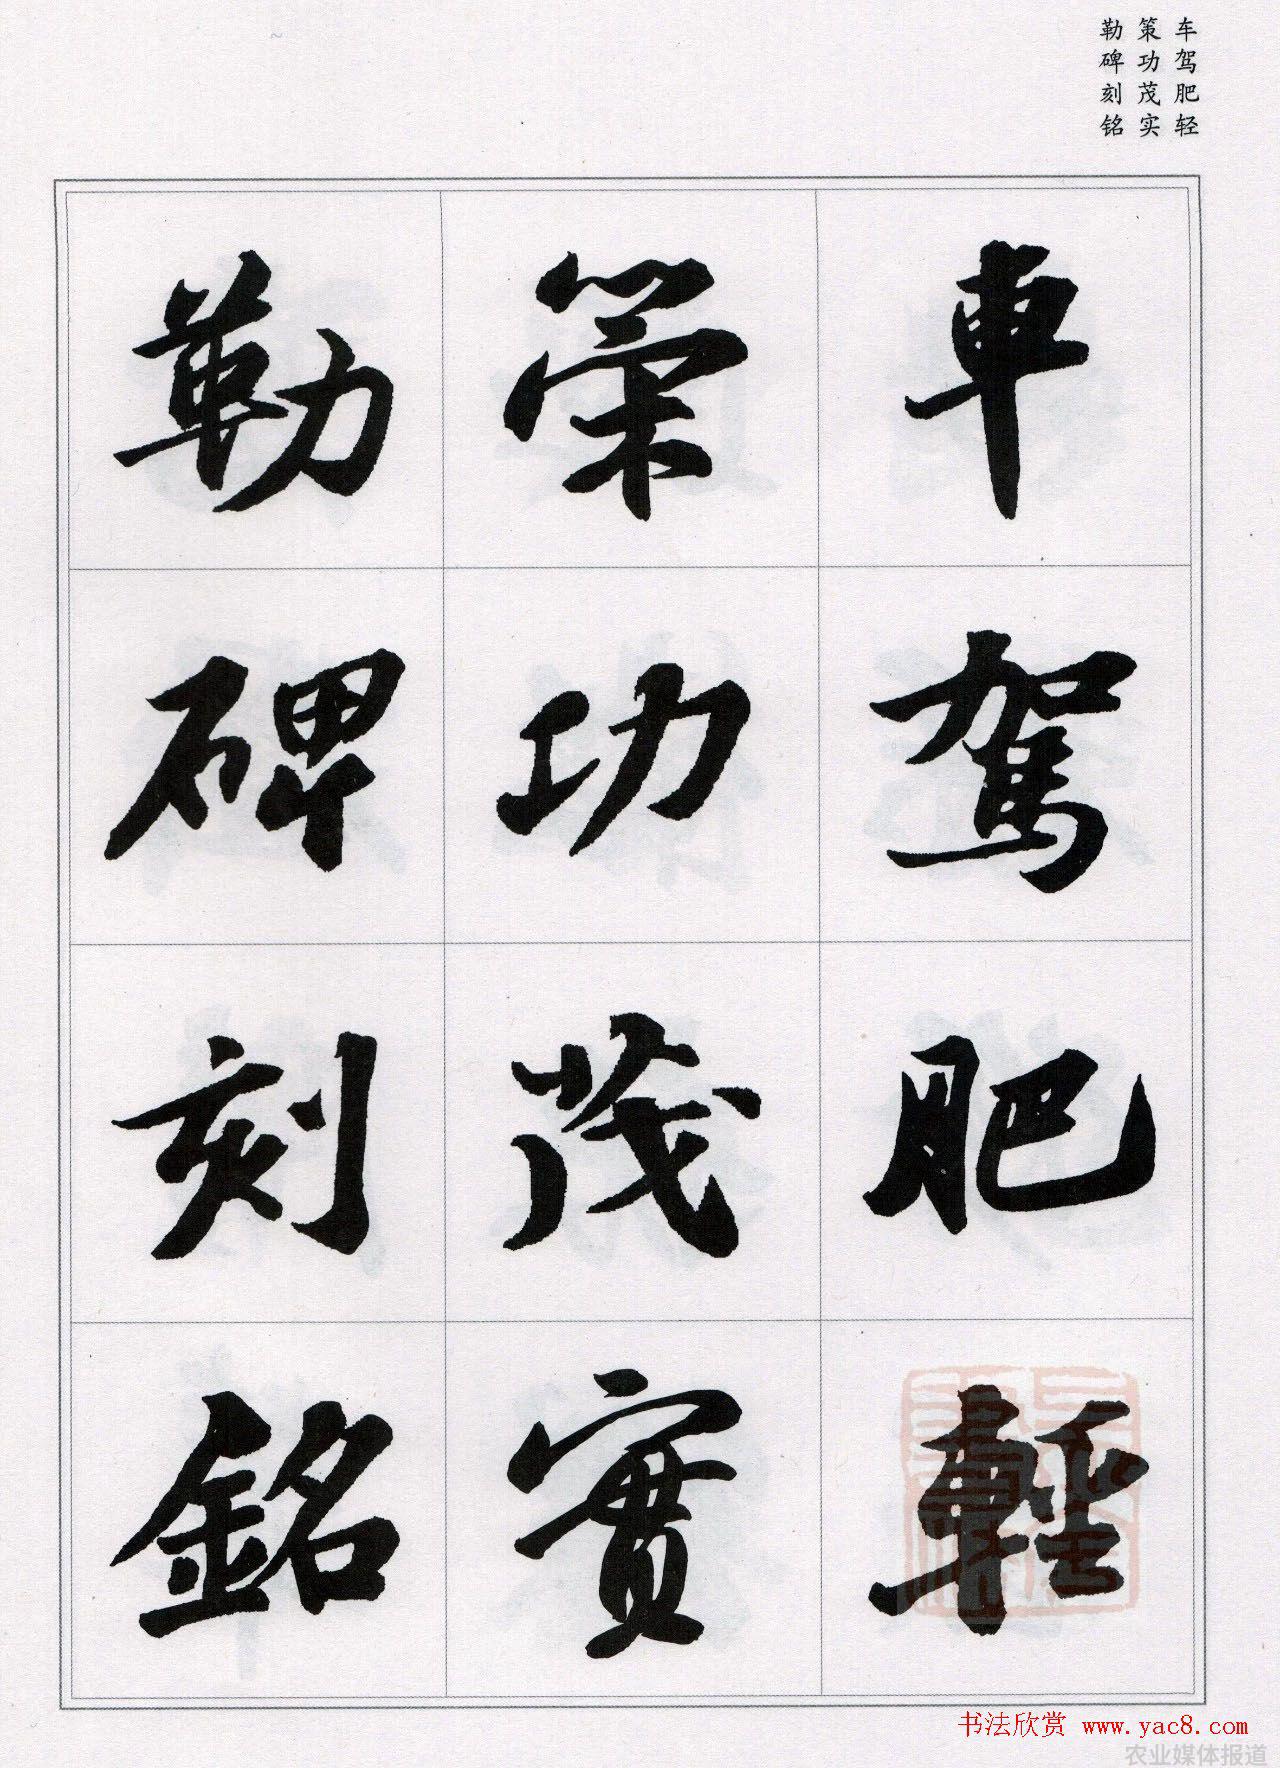 车驾肥轻
策功茂实
勒碑刻铭
車駕肥輕
策功茂實
勒碑刻銘
书法欣赏 www.yac8.com
农业媒体报道